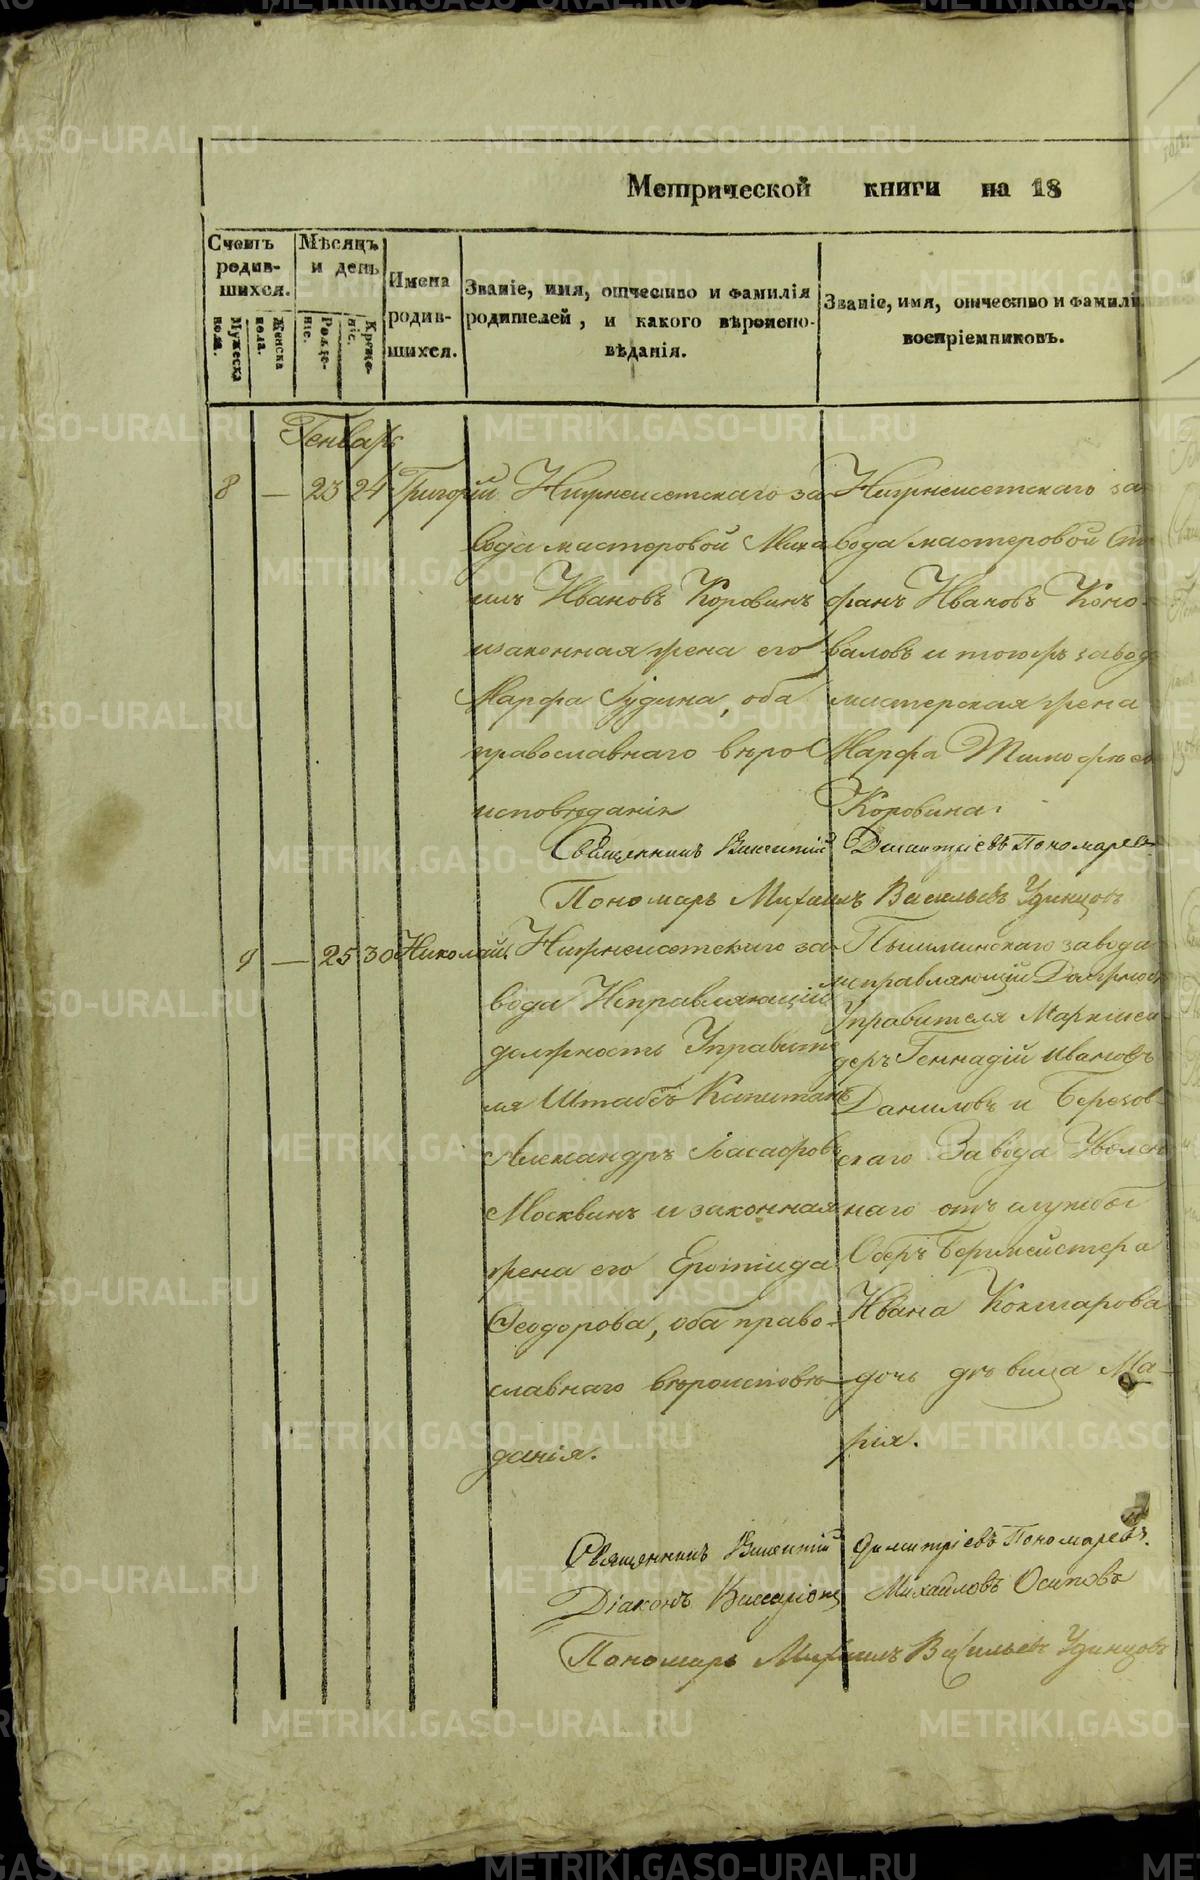 Метрической книги на 18
Счетъ родив-шихся.
Мужеска пола.
Женска пола.
Мѣсяцъ и день
Рожде-ніе.
Креще-ніе.
Имена родив-шихся.
Званіе, имя, отчество и фамилія
родителей, и какого вѣроиспо-
вѣданія.
Званіе, имя, отчество и фамилі
воспріемниковъ.
Генварь
8 — 23 24 Григорій
Нижнеисетскаго за-
вода мастеровой Миха
илъ Ивановъ Коровинъ
и законная жена его
Марфа Іудина, оба
православнаго вѣро
исповѣданія
Нижнеисетскаго за-
вода мастеровой Сте
фанъ Ивановъ Коно-
валовъ и тогожъ завод
мастерская жена
Марфа Тимофеев
Коровина.
Священникъ Викентій Димитріевъ Пономаревъ
Пономарь Михаилъ Васильевъ Удинцовъ
9 — 25 30 Николай
Нижнеисетскаго за-
вода Исправляющій
должность Управите
ля Штабсъ Капитанъ
Александръ
Москвинъ и законная
жена его
Феодорова, оба право-
славнаго вѣроисповѣ-
данія.
Пышминскаго завода
исправляющій Должнос
Управителя Маркшей-
деръ Геннадій Ивановъ
Даниловъ и Березов-
скаго Завода Уволен
наго отъ службы
Оберъ Бергмейстера
Ивана Кокшарова
дочь дѣвица Ма-
рія.
Священникъ Викентій Димитріевъ Пономаревъ.
Діаконъ Виссаріонъ Михайловъ Осиповъ
Пономарь Михаилъ Васильевъ Удинцовъ
METRIKI.GASO-URAL.RU